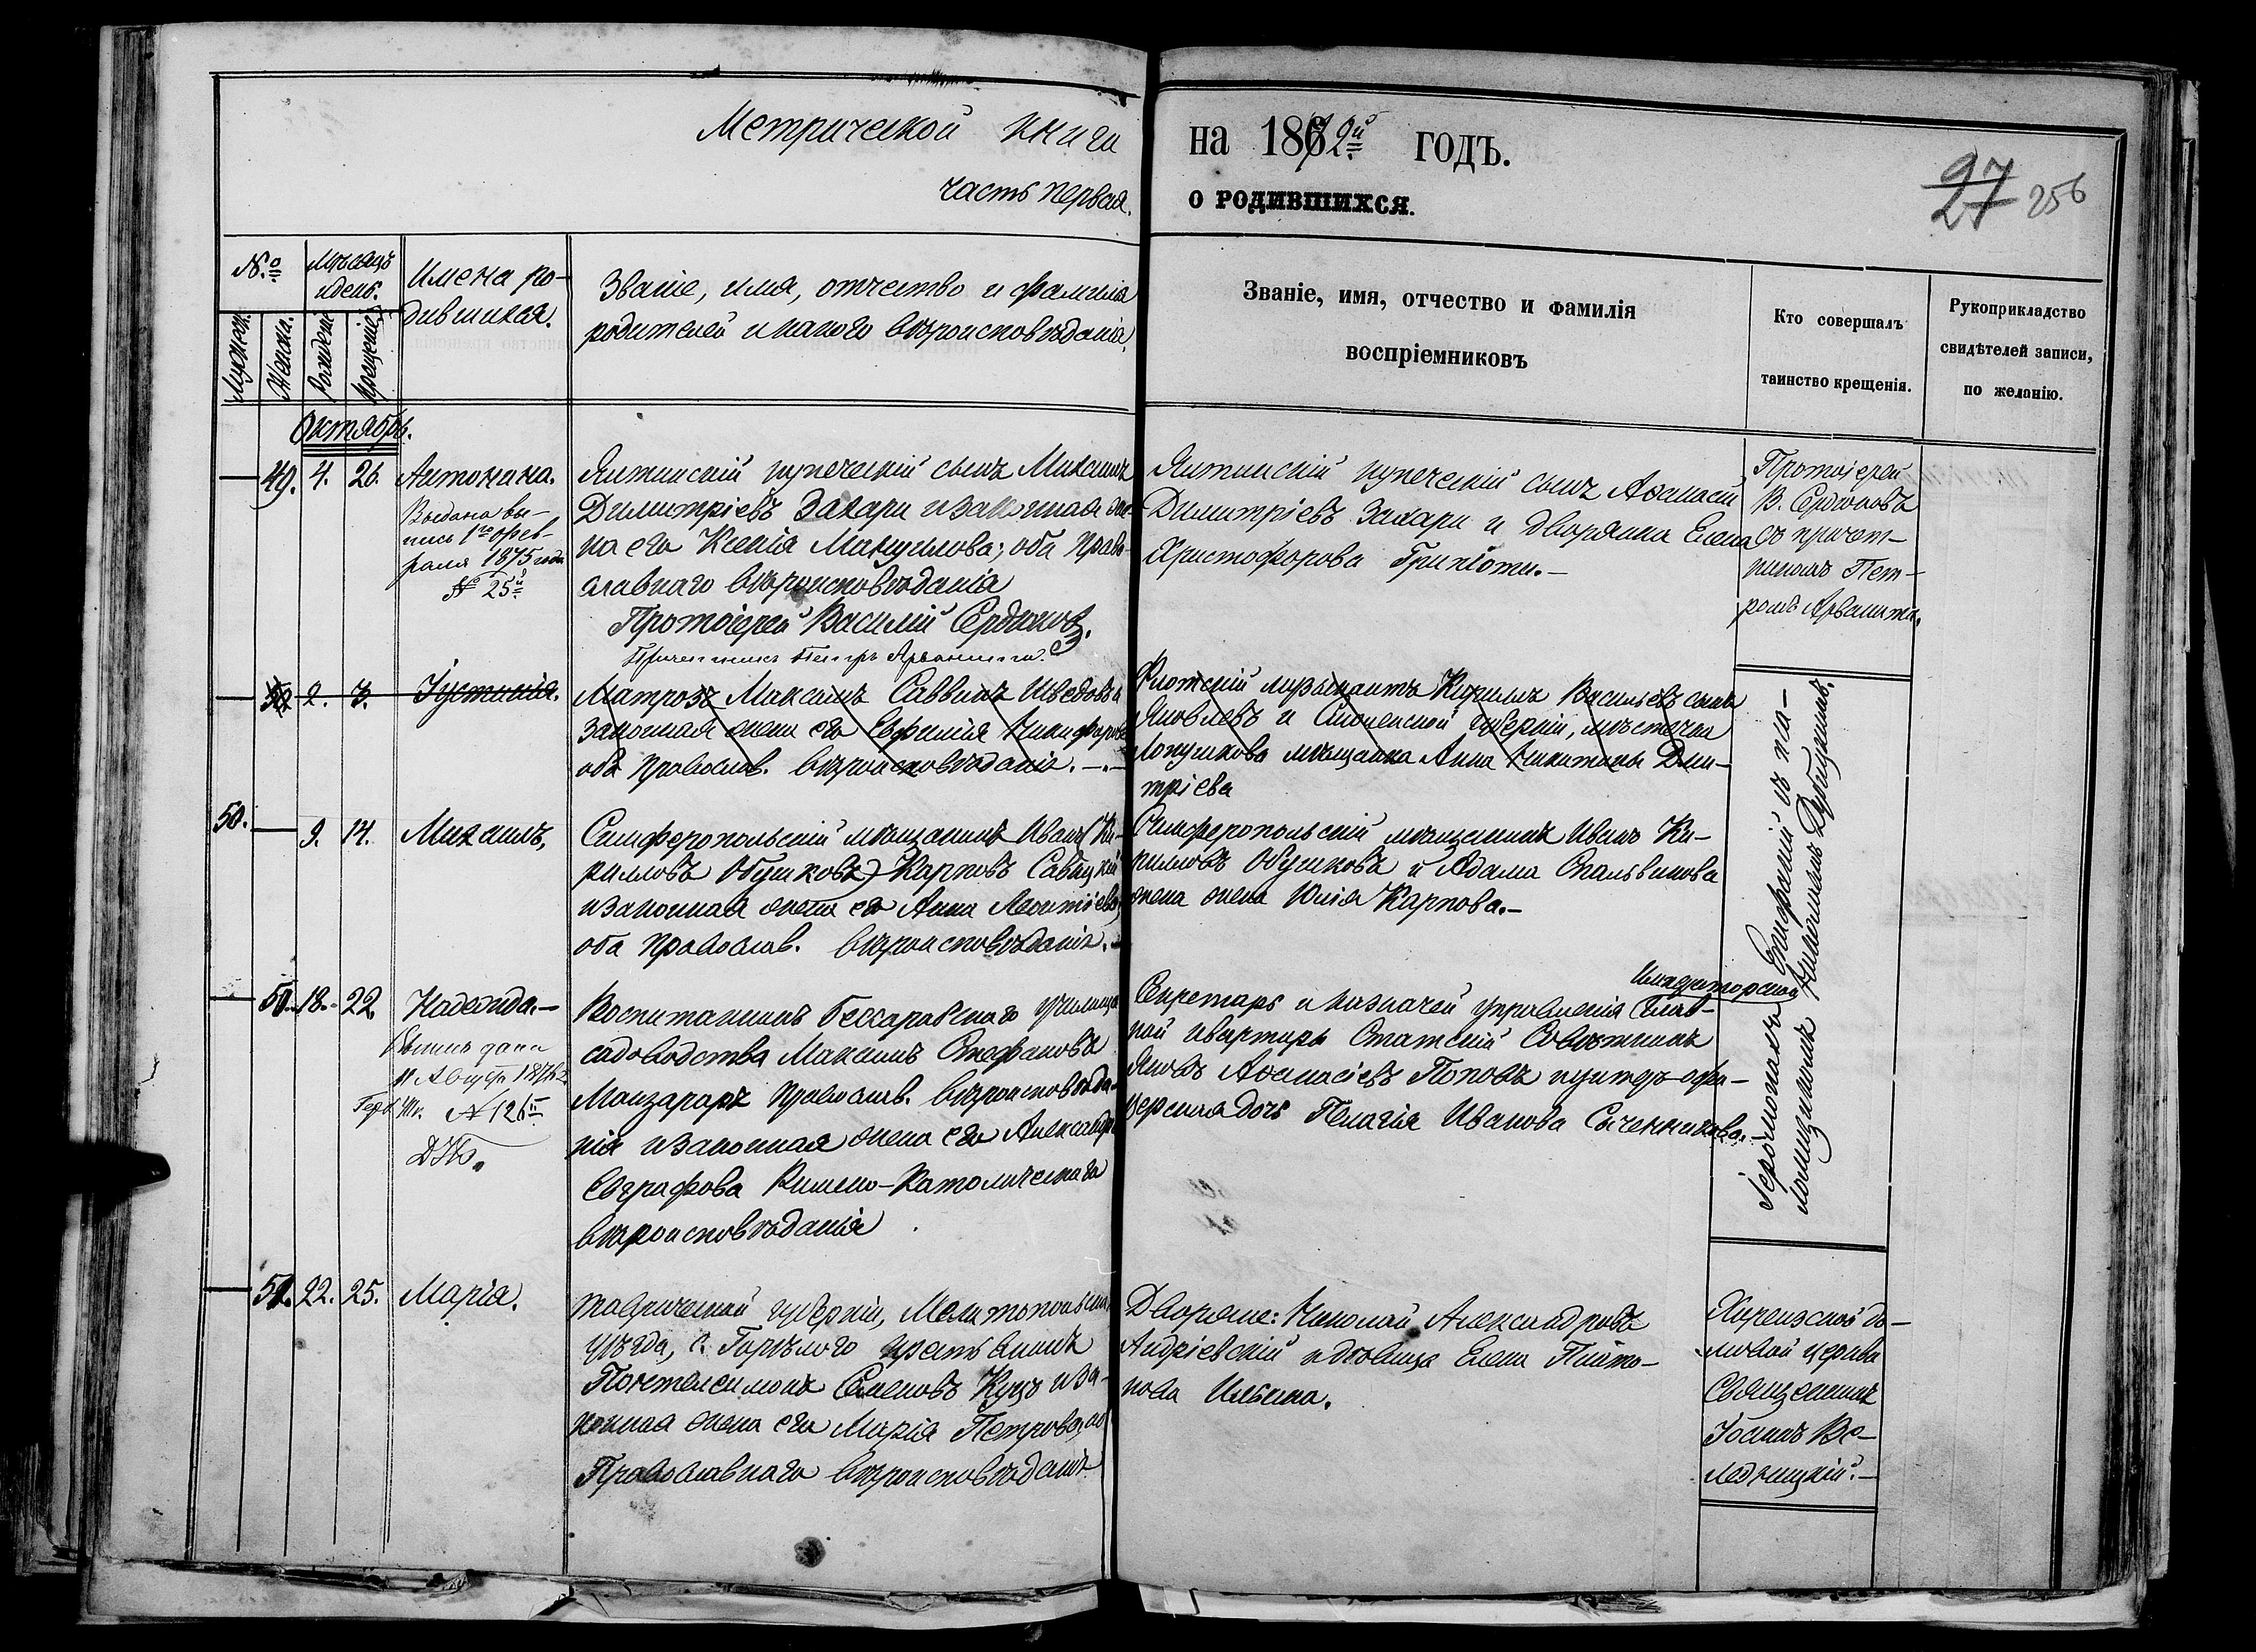 Метрической книги на 1872й годъ.
часть первая. о родившихся.
97
27 256
№о
Мѣсяцъ
и день.
Мужеск.
Женск.
Рожденіе
Крещеніе
Имена ро-
дившихся.
Званіе, имя, отчество и фамилія
родителей и какого вѣроисповѣданія.
Званіе, имя, отчество и фамилія
воспріемниковъ
Кто совершалъ
таинство крещенія.
Рукоприкладство
свидѣтелей записи,
по желанію.
Октябрь.
49. 4. 26. Антонина.
Выдана вы-
пись 1го фев-
раля 1875 года
№ 25й
Ялтинскій купеческій сынъ Михаилъ
Димитріевъ Захари и законная же-
на его Ксенія Мануилова; оба право-
славнаго вѣроисповѣданія
Протоіерей Василій Сердюковъ.
Причетникъ Петръ Арванити.
Ялтинскій купеческій сынъ Аѳанасій
Димитріевъ Захари и дворянка Елена
Христофорова Грипіоти.—
Протоіерей
В. Сердюковъ
съ причет-
никомъ Пет-
ромъ Арванити.
50 2. 7. Іустинія.
Матрозъ Максимъ Саввинъ Шведовъ и
законная жена его Евфимія Никифорова
оба православ. вѣроисповѣданія.—
Флотскій музыкантъ Кириллъ Васильевъ сынъ
Яковлевъ и Смоленской губерніи, мѣстечка
Лопушкова мѣщанка Анна Никитина Дми-
тріева
50. 9. 14. Михаилъ,
Симферопольскій мѣщанинъ Иванъ (Ки-
рилловъ Обушковъ) Карповъ Савицкій
и законная жена его Анна Леонтіева,
оба православ. вѣроисповѣданія.—
Симферопольскій мѣщанинъ Иванъ Ки-
рилловъ Обушковъ и Адама Стальвинова
жена Юлія Карпова.—
51. 18. 22. Надежда.—
дана
11 Август 1876
№ 126й
Воспитанникъ Бессарабскаго училища
садоводства Максимъ Стефановъ
Манзараръ православ. вѣроисповѣда-
нія и законная жена его Александра
Евграфова Римско-Католическаго
вѣроисповѣданія
Секретарь и казначей управленія Глав-
ной квартиры Статскій Совѣтникъ
Яковъ Аѳанасіевъ Поповъ и унтеръ-офи-
церская дочь Пелагія Иванова Сыченникова.—
Іеромонахъ Епифаній съ па-
52. 22. 25. Марія.
Таврической губерніи, Мелитопольскаго
уѣзда, с. Горѣлого крестьянинъ
Пантелеимонъ Семеновъ Куцъ и за-
конная жена его Марія Петрова, оба
Православнаго вѣроисповѣданія.
Дворяне: Николай Александровъ
Андріевскій и дѣвица Елена Плато-
нова Ильина.
до-
мовой церкви
Священникъ
Іоаннъ Ве-
ледницкій.—